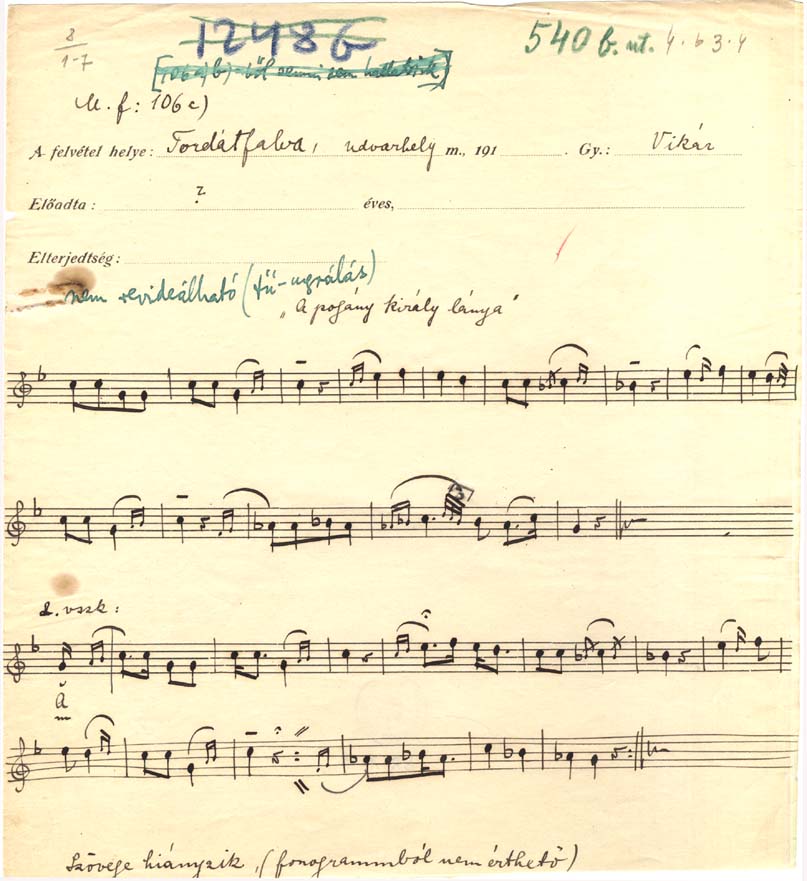 8
1-7
12486
540 b. ut. 4 · b 3 · 4
[106a)b)-ből semmi sem hallatszik]
M. f: 106c)
A felvétel helye: Tordátfalva, udvarhely m., 191 . Gy.: Vikár
Előadta: ? éves,
Elterjedtség:
nem revideálható (tű-ugrálás)
„A pogány király lánya"
3
2. vszk:
A
Szövege hiányzik, (fonogrammból nem érthető)